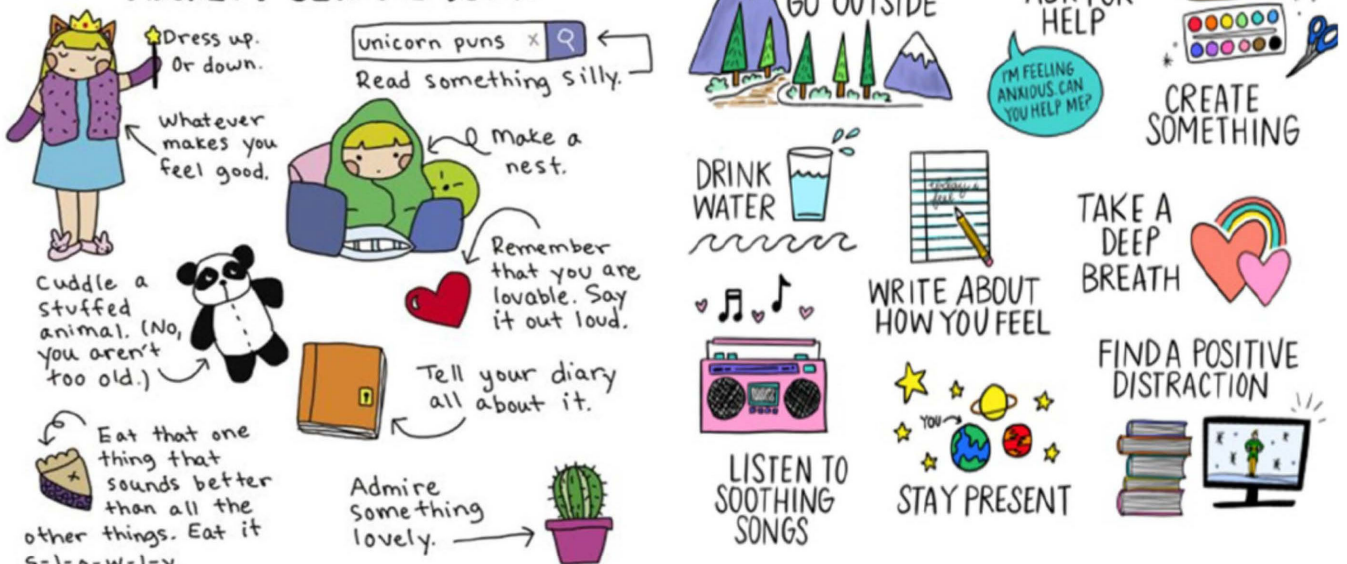 Dress up.
Or down.
Whatever
makes you
feel good.
unicorn puns x
Read something silly.
Make a
nest.
Cuddle a
stuffed
animal. (No,
you aren't
too old.)
Remember
that you are
lovable. Say
it out loud.
Tell your diary
all about it.
Eat that one
thing that
sounds better
than all the
other things. Eat it
s-l-o-w-l-y
Admire
something
lovely.
GO OUTSIDE
ASK FOR
HELP
I'M FEELING
ANXIOUS. CAN
YOU HELP ME?
CREATE
SOMETHING
DRINK
WATER
today i
feel
WRITE ABOUT
HOW YOU FEEL
TAKE A
DEEP
BREATH
LISTEN TO
SOOTHING
SONGS
YOU
STAY PRESENT
FIND A POSITIVE
DISTRACTION